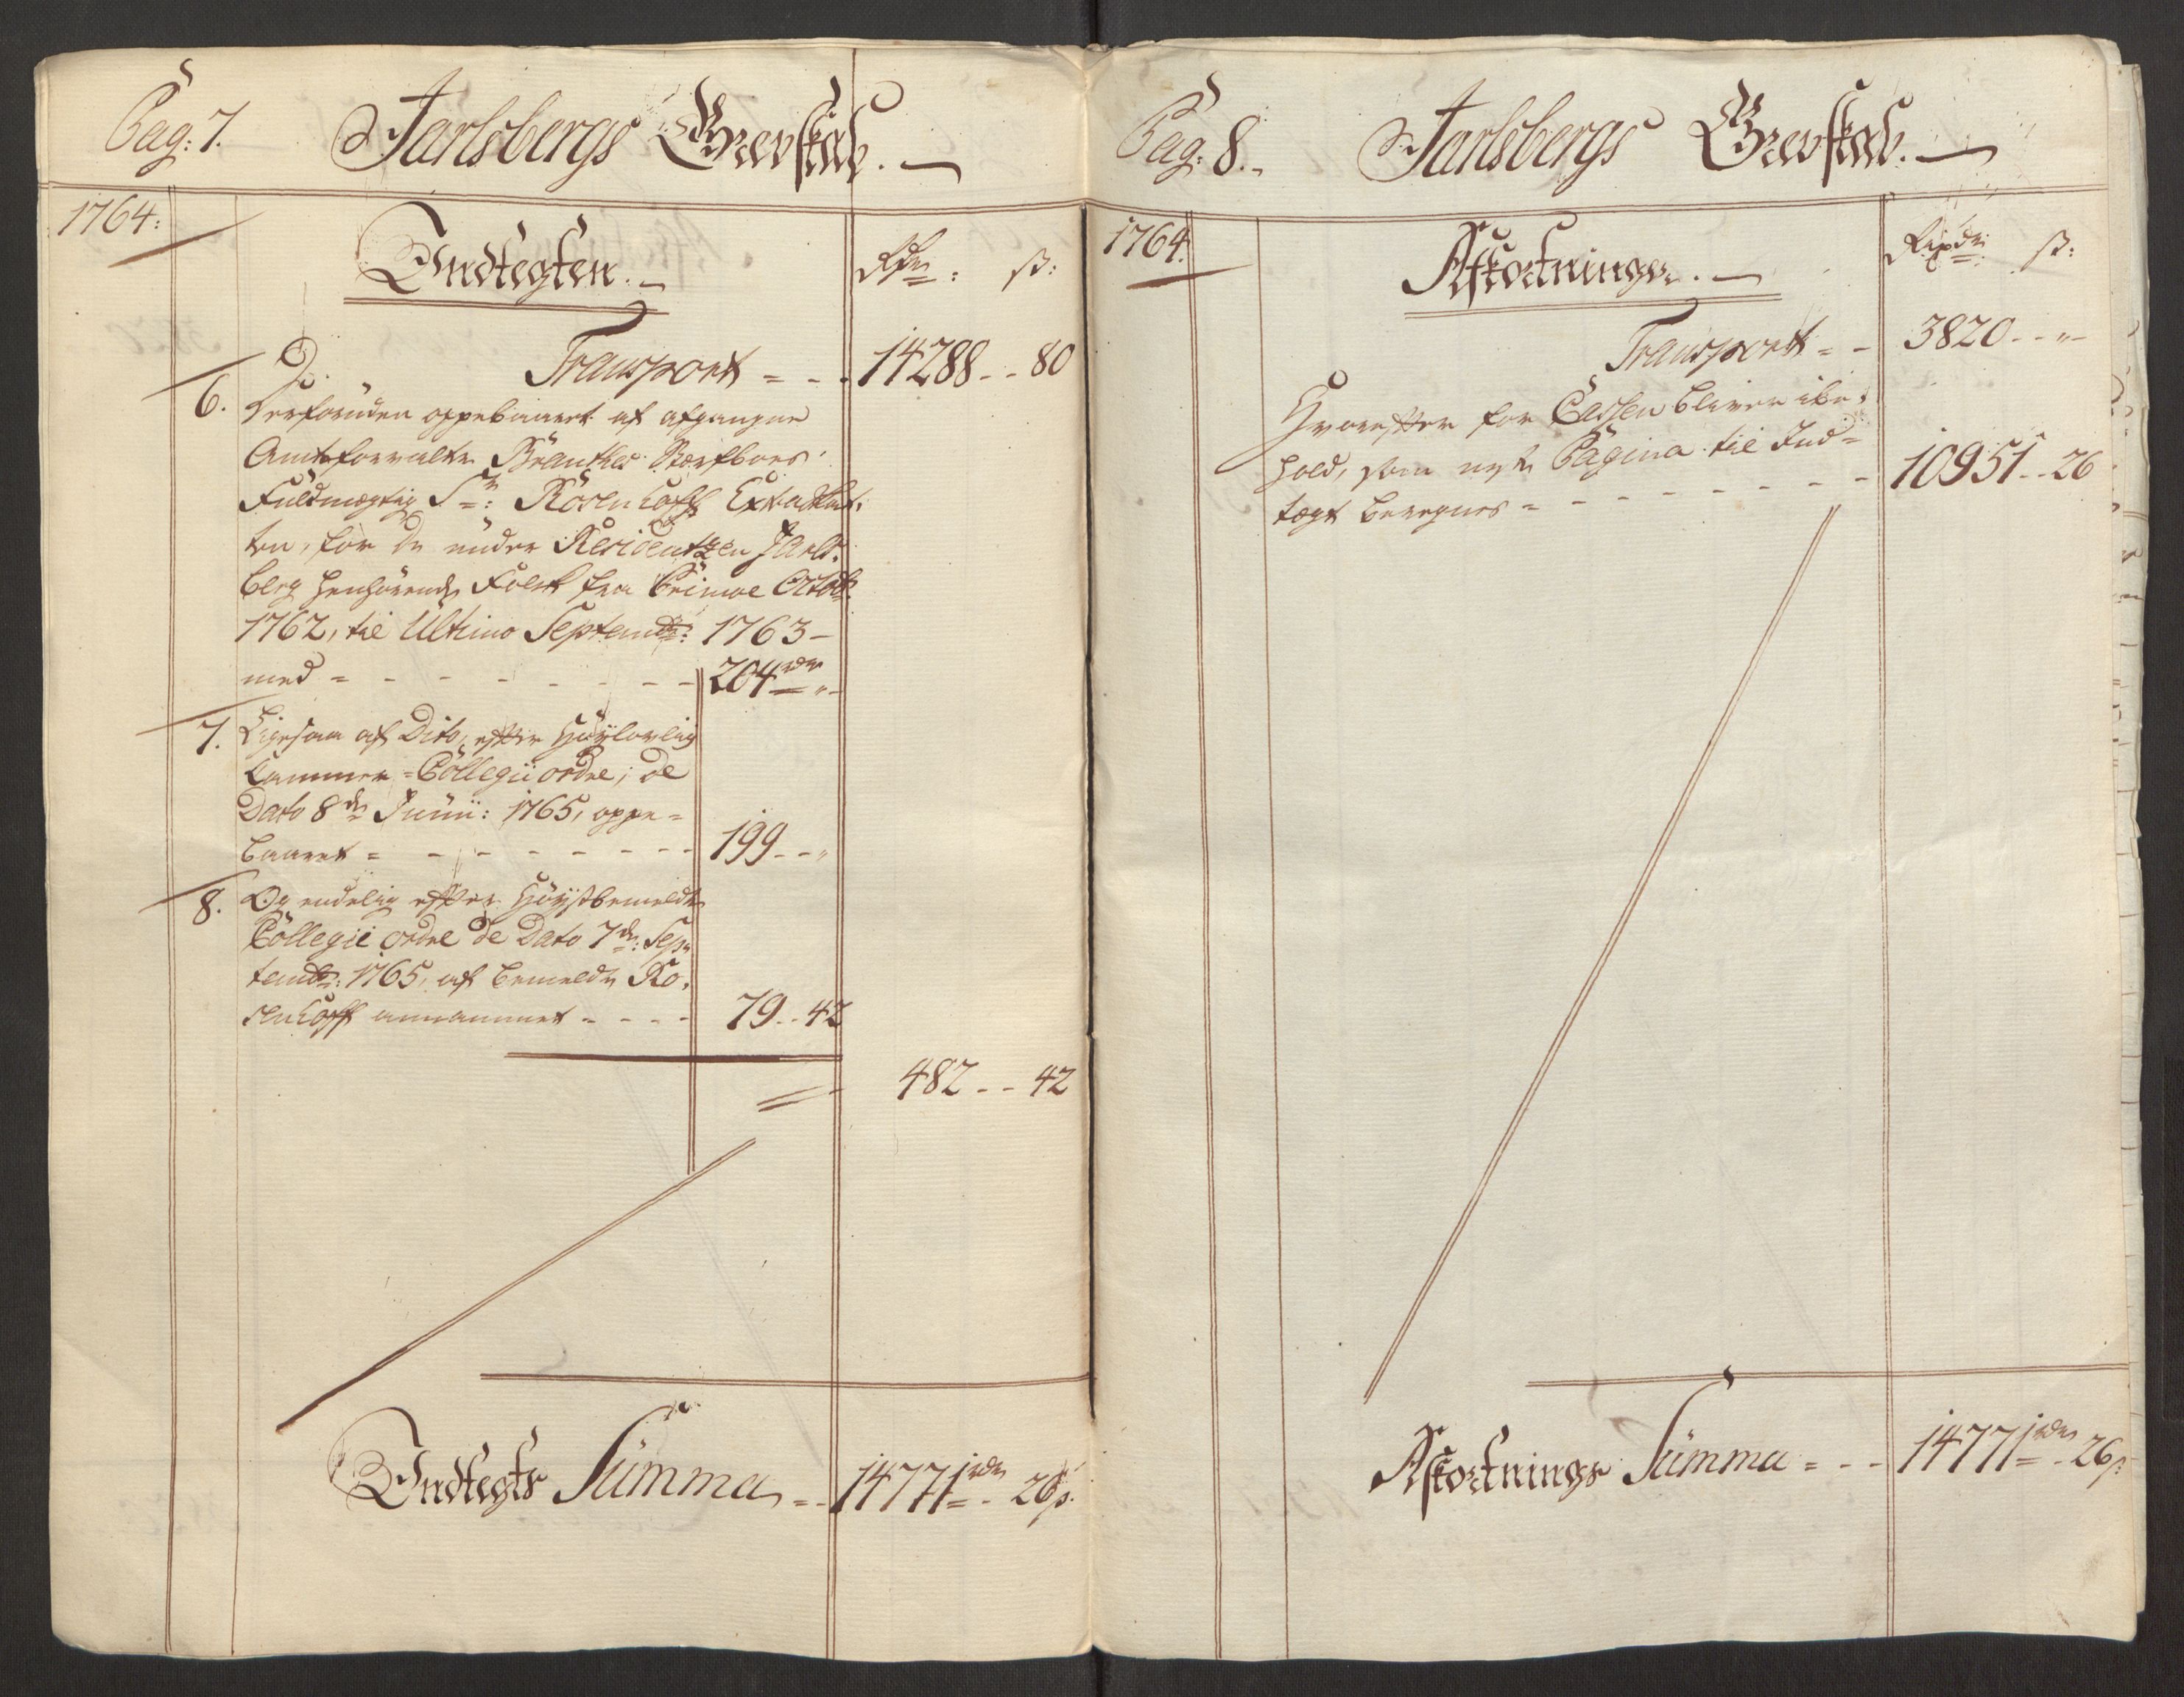 Pag: 7.
Jarlsbergs Grevskab.
1764:
Indtegten.
Rdr: ß:
Transport = - - 14288 - - 80
6. Derforuden oppebaaret af afgangne
Amtsforvalter Stærfboes
Fuldmægtig Sr: Rosenhoff
for de under Residentzen Jarls-
berg henhørende Folch fra Primo Octobr:
1762, til Ultimo Septembr: 1763 -
med = - - - - - - - 204 rdr „
7. Ligesaa af Dito, efter Høylovlig
Cammer-Collegii ordre, de
Dato 8de Junii: 1765, oppe-
baaret = - - - - - - - 199 - - „
8. Og endelig efter Høystbemeldte
Collegii ordre de Dato 7de: Sep-
tembr: 1765, af bemeldte Ro-
senhoff annammet - - - - 79 - - 42
482 - - 42
Indtegts Summa = - 14771 rdr - 26 ß.
Pag: 8.
Jarlsbergs Grevskab.
1764.
Afkortninger.
Rixdr: ß:
Transport = - 3820 - - „ -
Hvorefter for Cassen bliver ibe-
hold, som neste Pagina til Ind-
tægt beregnes = - - - - - - - 10951 - - 26
Afkortnings Summa = - - 14771 rdr - 26 ß